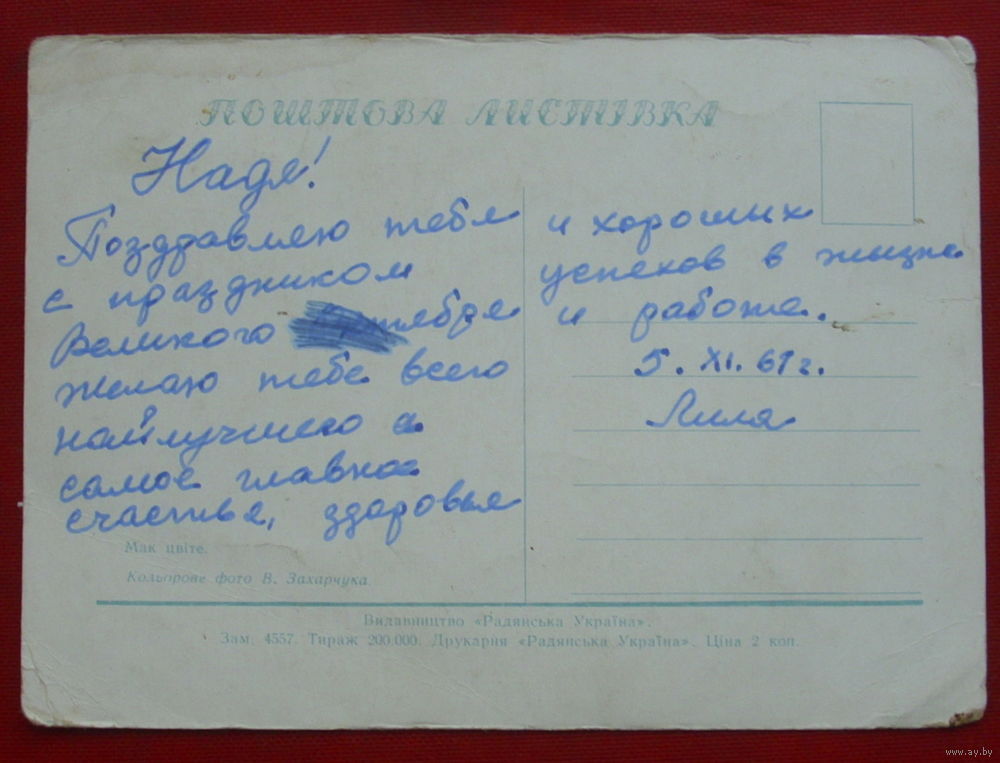 ПОШТОВА ЛИСТІВКА
Надя!
Поздравляю тебя
с праздником
Великого тября
желаю тебе всего
найлучшего а
самое главное
счастье, здоровья
и хороших
успехов в жизни
и работе.
5. XI. 61 г.
Лиля
Мак цвіте.
Кольорове фото В. Захарчука.
Видавництво «Радянська Україна».
Зам. 4557. Тираж 200.000. Друкарня «Радянська Україна». Ціна 2 коп.
www.ay.by